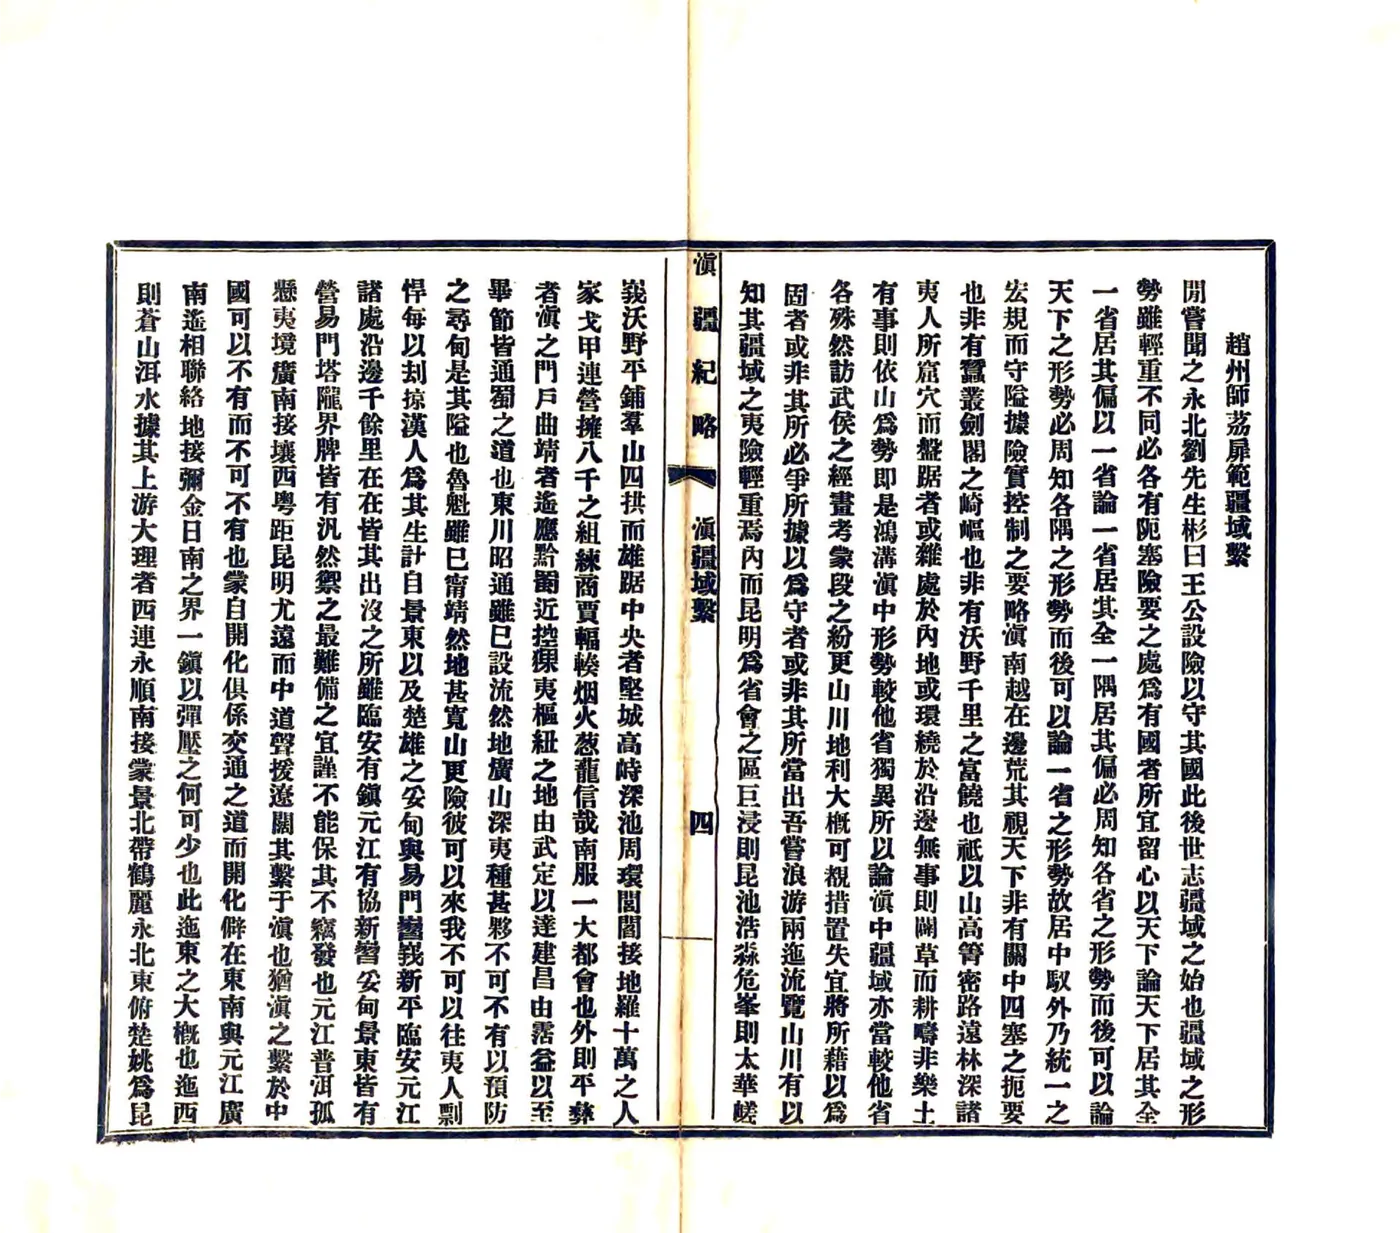 趙州師荔扉範疆域繫
閒嘗聞之永北劉先生彬曰王公設險以守其國此後世志疆域之始也疆域之形
勢雖輕重不同必各有阨塞險要之處爲有國者所宜留心以天下論天下居其全
一省居其偏以一省論一省居其全一隅居其偏必周知各省之形勢而後可以論
天下之形勢必周知各隅之形勢而後可以論一省之形勢故居中馭外乃統一之
宏規而守隘據險實控制之要略滇南越在邊荒其視天下非有關中四塞之扼要
也非有蠶叢劍閣之崎嶇也非有沃野千里之富饒也祗以山高箐密路遠林深諸
夷人所窟穴而盤踞者或雜處於內地或環繞於沿邊無事則闢草而耕疇非樂土
有事則依山爲勢即是鴻溝滇中形勢較他省獨異所以論滇中疆域亦當較他省
各殊然訪武侯之經畫考蒙段之紛更山川地利大槪可覩措置失宜將所藉以爲
固者或非其所必爭所據以爲守者或非其所當出吾嘗浪游兩迤流覽山川有以
知其疆域之夷險輕重焉內而昆明爲省會之區巨浸則昆池浩淼危峯則太華嵯
滇疆紀略 滇疆域繫 四
峩沃野平鋪羣山四拱而雄踞中央者堅城高峙深池周環閭閻接地羅十萬之人
家戈甲連營擁八千之組練商賈輻輳烟火葱蘢信哉南服一大都會也外則平彝
者滇之門戶曲靖者遙應黔蜀近控猓夷樞紐之地由武定以達建昌由霑益以至
畢節皆通蜀之道也東川昭通雖已設流然地廣山深夷種甚夥不可不有以預防
之尋甸是其隘也魯魁雖已甯靖然地甚寬山更險彼可以來我不可以往夷人剽
悍每以刦掠漢人爲其生計自景東以及楚雄之妥甸與易門嶍峩新平臨安元江
諸處沿邊千餘里在在皆其出沒之所雖臨安有鎭元江有協新嶍妥甸景東皆有
營易門塔隴界牌皆有汛然禦之最難備之宜謹不能保其不竊發也元江普洱孤
懸夷境廣南接壤西粵距昆明尤遠而中道聲援遼闊其繫于滇也猶滇之繫於中
國可以不有而不可不有也蒙自開化俱係交通之道而開化僻在東南與元江廣
南遙相聯絡地接彌金日南之界一鎭以彈壓之何可少也此迤東之大槪也迤西
則蒼山洱水據其上游大理者西連永順南接蒙景北帶鶴麗永北東俯楚姚爲昆